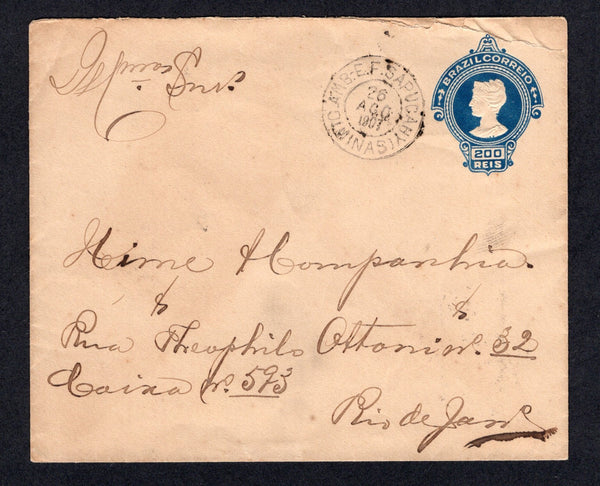 Illmos. Snrs.
AMB-E.F. SAPUCAHY
26
AGO
1907
(MINAS)
BRAZIL CORREIO
200
REIS
Hime & Companhia.
Rua Theophilo Ottoni No. 32
Caixa No. 593
Rio de Janro